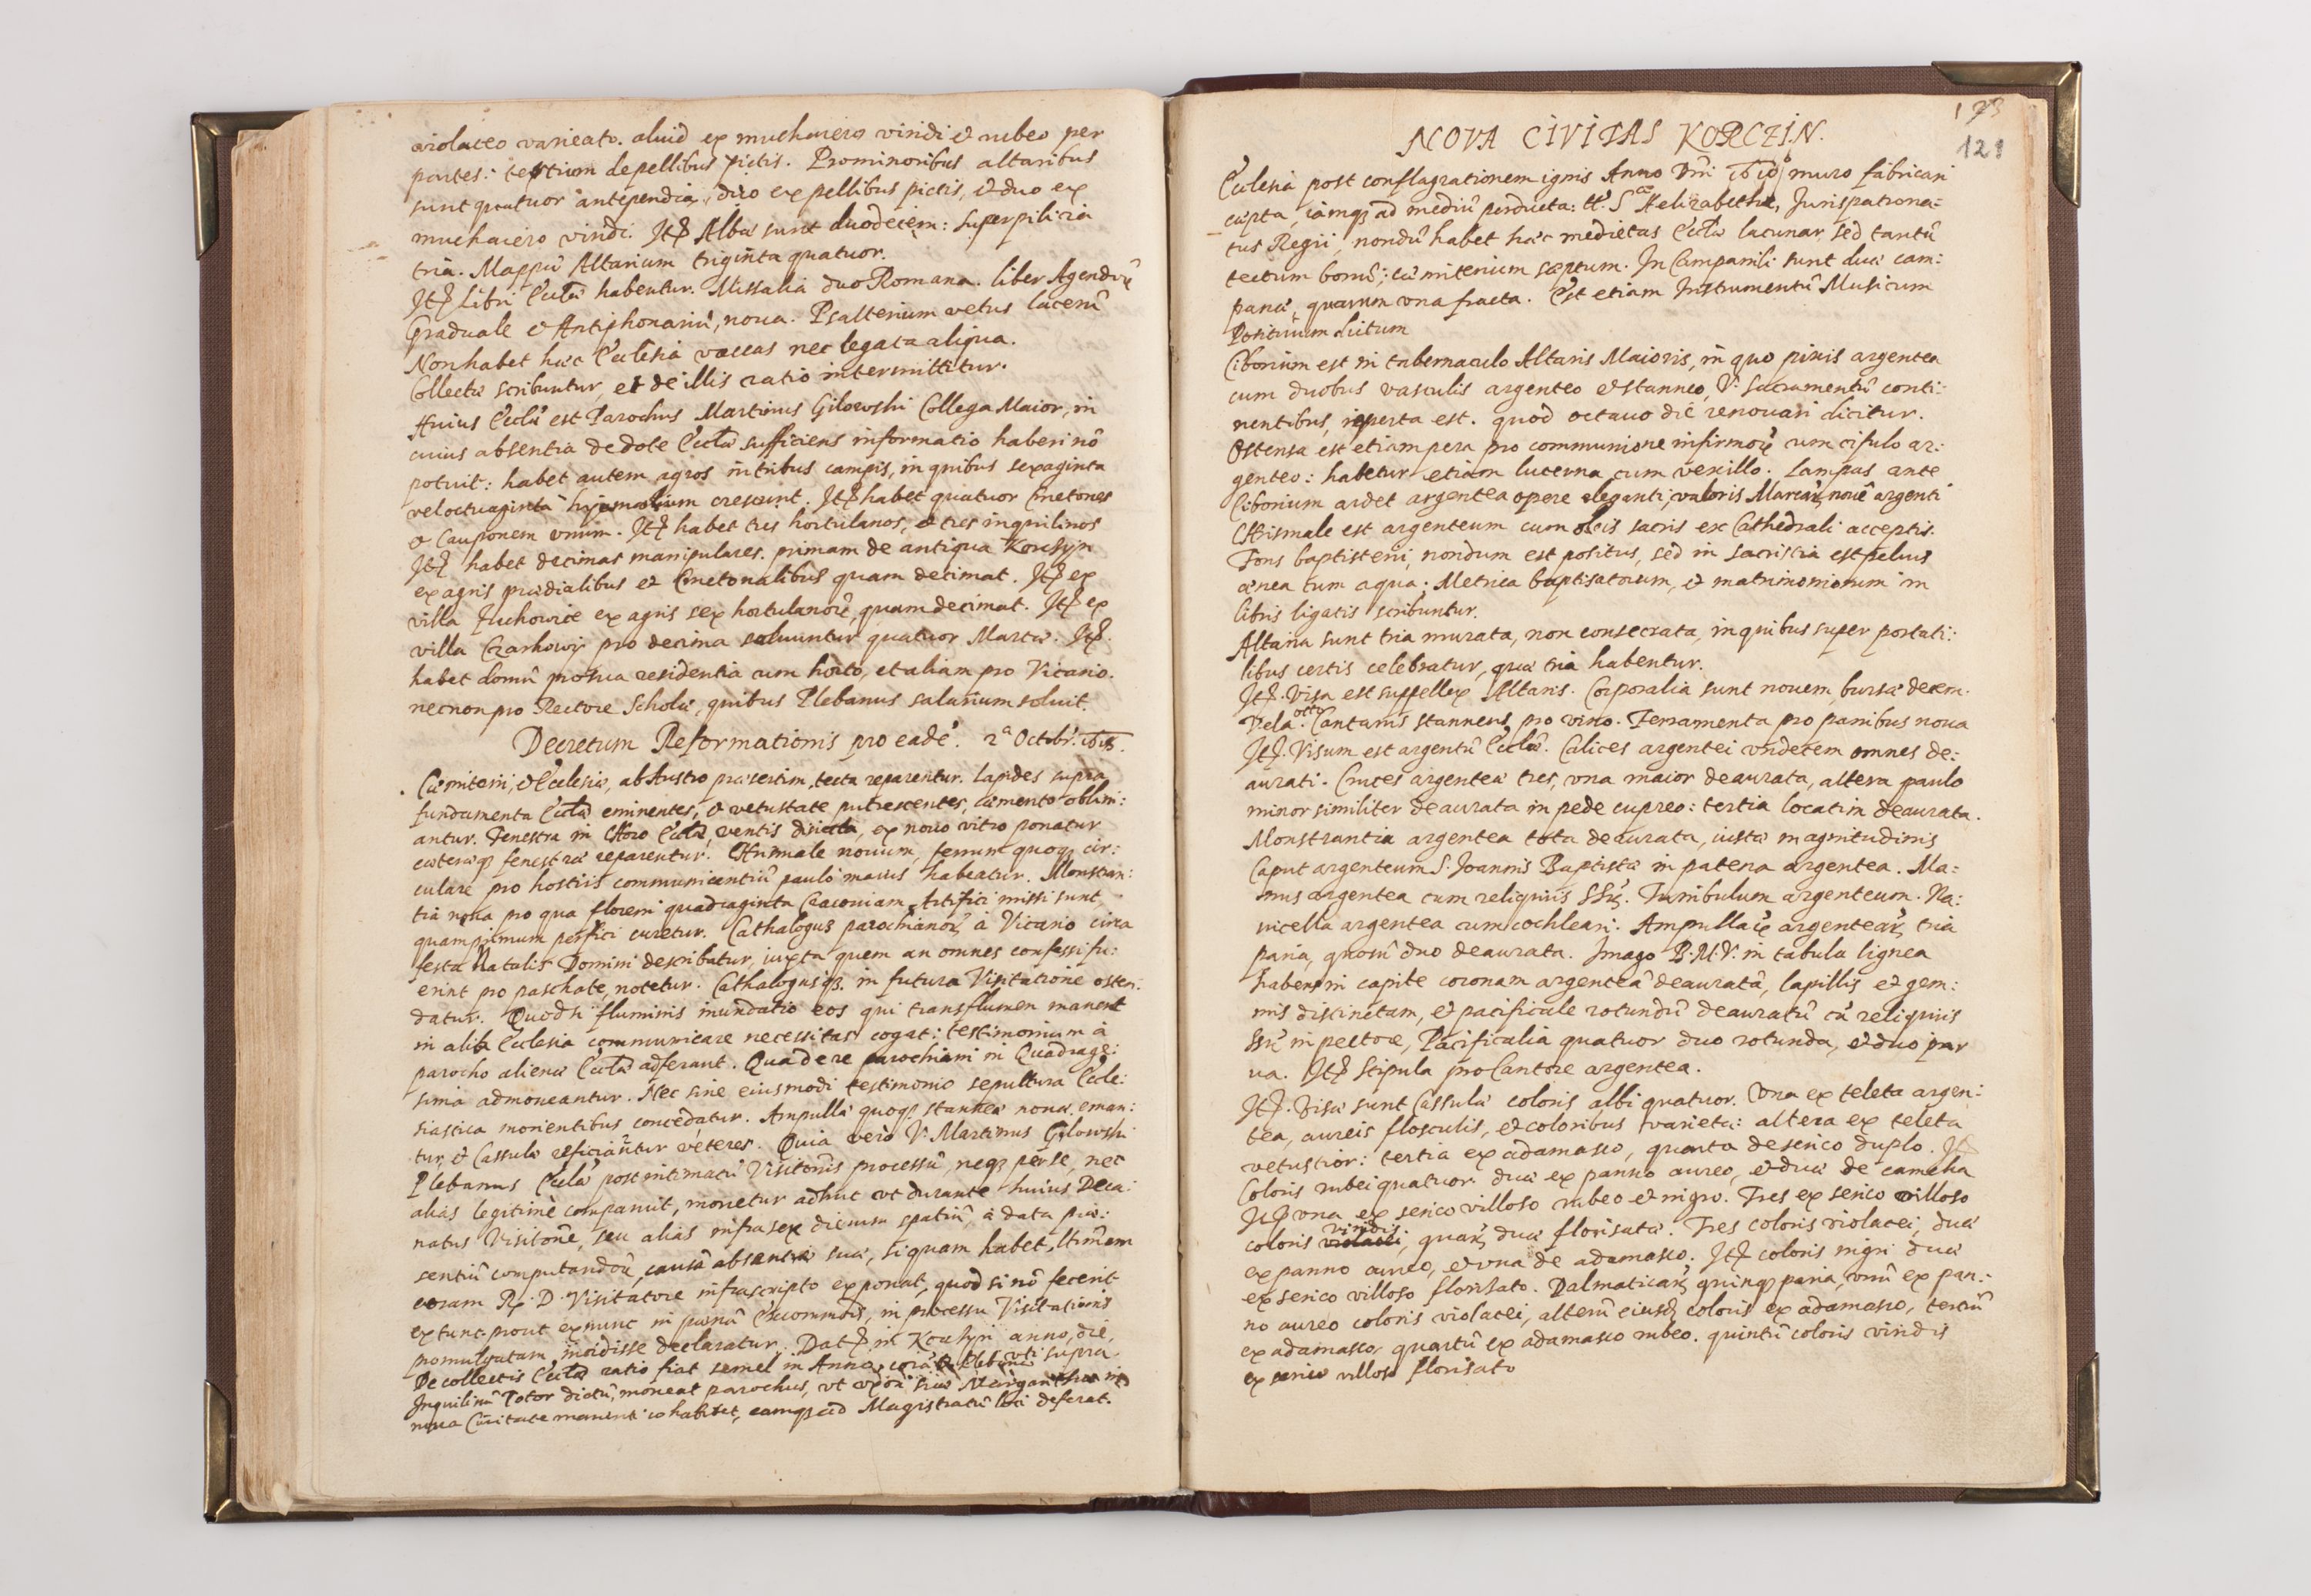 violaceo varieato. aliud ex muchaiero viridi et rubeo per
partes: tertium de pellibus pictis. Pro minoribus altaribus
sunt quatuor antependia, duo ex pellibus pictis, et duo ex
muchaiero viridi. Itē Albæ sunt duodeciem: superpilicia
tria. Mappæ Altarium triginta quatuor.
Itē Libri Eccl̃æ habentur. Missalia duo Romana. liber Agendorũ
Graduale et Antiphonariũ, noua. Psalterium vetus lacerũ
Non habet hæc Ecclesia vaccas nec legata aliqua.
Collectæ scribuntur, et de illis ratio intermittitur.
Huius Eccl̃æ est Parochus Martinus Gilowski Collega Maior, in
cuius absentia de dote Eccl̃æ sufficiens informatio haberi nõ
potuit: habet autem agros in tribus campis, in quibus sexaginta
vel octuaginta crescunt. Itē habet quatuor Cmetones
et Cauponem vnum. Itē habet tres hortulanos, et tres inquilinos
Itē habet decimas manipulares. primam de antiqua Korczyn
ex agris prædialibus et Cmetonalibus quam decimat. Itē ex
villa Juchowice ex agris sex hortulanorũ, quam decimat. Itē ex
villa Czarkowy pro decima soluuntur quatuor Marcæ. Itē.
habet domũ pro sua residentia cum horto, et aliam pro Vicario.
necnon pro Rectore Scholæ, quibus Plebanus salarium soluit.
Decretum Reformationis pro eadẽ. 2ª Octobr.
Cæmiterii, et Ecclesiæ, ab Austro præsertim, tecta reparentur. lapides supra
fundamenta Eccl̃æ eminentes, et vetustate putrescentes, cæmento oblini:
antur. Fenestra in Choro Eccl̃æ, ventis disiecta, ex nouo vitro ponatur
cæteræq fenestræ reparentur. Chrismale nouum, ferrum quoq cir:
culare pro hostiis communicantiũ paulo maius habeatur. Monstran:
tia noua pro qua floreni quadraginta Cracouiam Artifici missi sunt,
quamprimum perfici curetur. Cathalogus parochianorũ, à Vicario circa
festa Natalis Domini describatur, iuxta quem an omnes confessi fu:
erint pro paschate, notetur. Cathalogusq. in futura Visitatione osten:
datur. Quod si fluminis inundatio eos qui trans flumen manent
in alia Ecclesia communicare necessitas cogat: testimonium à
parocho alienæ Eccl̃æ adferant. Qua de re parochiani in Quadrage:
sima admoneantur. Nec sine eiusmodi testimonio sepultura Eccle:
siastica morientibus concedatur. Ampullæ quoq stanneæ nouæ eman:
tur, et Cassulæ reficiantur veteres. Quia vero V. Martinus Gilowski
Plebanus Eccl̃æ post intimatũ Visitõnis processũ, neq per se, nec
alias legitimè comparuit, monetur adhuc vt durante huius Deca:
natus Visitõne, seu alias infra sex dierum spatiũ, à data præ:
sentiũ computandorũ, causã absentiæ suæ, si quam habet, ltimam
coram R. D. Visitatore infrascripto exponat, quod si nõ fecerit
ex tunc prout ex nunc in pœnã Excommõis, in processu Visitationis
promulgatam incidisse declaratur. Datē in Korczyn anno, die,
vti supra
De collectis Eccl̃æ ratio fiat semel in Anno, corã Plebano
Inquilinũ Totor dictũ, moneat parochus, vt vxori suæ Margarethæ in
noua Ciuitate manenti cohabitet, eamq ad Magistratũ loci deferat.
173
121
NOVA CIVITAS KORCZIN.
Ecclesia post conflagrationem ignis Anno Dñi muro fabricari
cæpta, iamq ad mediũ perducta: tt. S. Helizabethæ, Jurispatrona:
tus Regii, nondũ habet hæc medietas Eccl̃æ lacunar, sed tantũ
tectum bonũ; cæmiterium sæptum. In Campanili sunt duæ cam:
panæ, quarum vna fracta. Est etiam Instrumentũ Musicum
Positiuum dictum
Ciborium est in tabernaculo Altaris Maioris, in quo pixis argentea
cum duobus vasculis argenteo et stanneo, V. Sacramentũ conti:
nentibus, reperta est. quod octauo die renouari dicitur.
Ostensa est etiam pera pro communione infirmorũ cum cifulo ar:
genteo: habetur etiam lucerna cum vexillo. Lampas ante
Ciborium ardet argentea opere eleganti, valoris Marcarũ nouẽ argenti
Chrismale est argenteum cum oleis sacris ex Cathedrali acceptis.
Fons baptisterii, nondum est positus, sed in sacristia est peluis
ænea cum aqua; Metrica baptisatorum, et matrimoniorum in
libris ligatis scribuntur.
Altaria sunt tria murata, non consecrata, in quibus super portati:
libus certis celebratur, quæ tria habentur.
Itē. Visa est suppellex Altaris. Corporalia sunt nouem, bursæ decem.
Vela octo. Cantarus stanneus pro vino. Ferramenta pro panibus noua
Itē. Visum est argentũ Eccl̃æ. Calices argentei vndecem omnes de:
aurati. Cruces argenteæ tres, vna maior deaurata, altera paulo
minor similiter deaurata in pede cupreo: tertia locatim deaurata.
Monstrantia argentea tota deaurata, iustæ magnitudinis
Caput argenteum S. Joannis Baptistæ in patena argentea. Ma:
nus argentea cum reliquiis SSrũ. Turibulum argenteum. Na:
uicella argentea cum cochleari. Ampullarũ argentearũ tria
paria, quorũ duo deaurata. Imago B.M.V. in tabula lignea
habens in capite coronam argenteã deauratã, lapillis et gem:
mis distinctam, et pacificale rotundũ deauratũ cũ reliquiis
SSrũ in pectore, Pacificalia quatuor duo rotunda, et duo par
ua. Itē Stipula pro Cantore argentea.
Itē. Visæ sunt Cassulæ coloris albi quatuor. Vna ex teleta argen:
tea, aureis flosculis, et coloribus varieta: altera ex teleta
vetustior: tertia ex adamasco, quarta de serico duplo. Itē
Coloris rubei quatuor. duæ ex panno aureo, et duæ de camcha
Itē vna ex serico villoso rubeo et nigro. Tres ex serico villoso
coloris violacei viridis, quarũ duæ florisatæ. Tres coloris violacei, duæ
ex panno aureo, et vna de adamasco. Itē coloris nigri duæ
ex serico villoso florisato. Dalmaticarũ quinq paria, vnũ ex pan:
no aureo coloris violacei, alterũ eiusd coloris ex adamasco, tertiũ
ex adamasco, quartũ ex adamasco rubeo. quintũ coloris viridis
ex serico villoso florisato